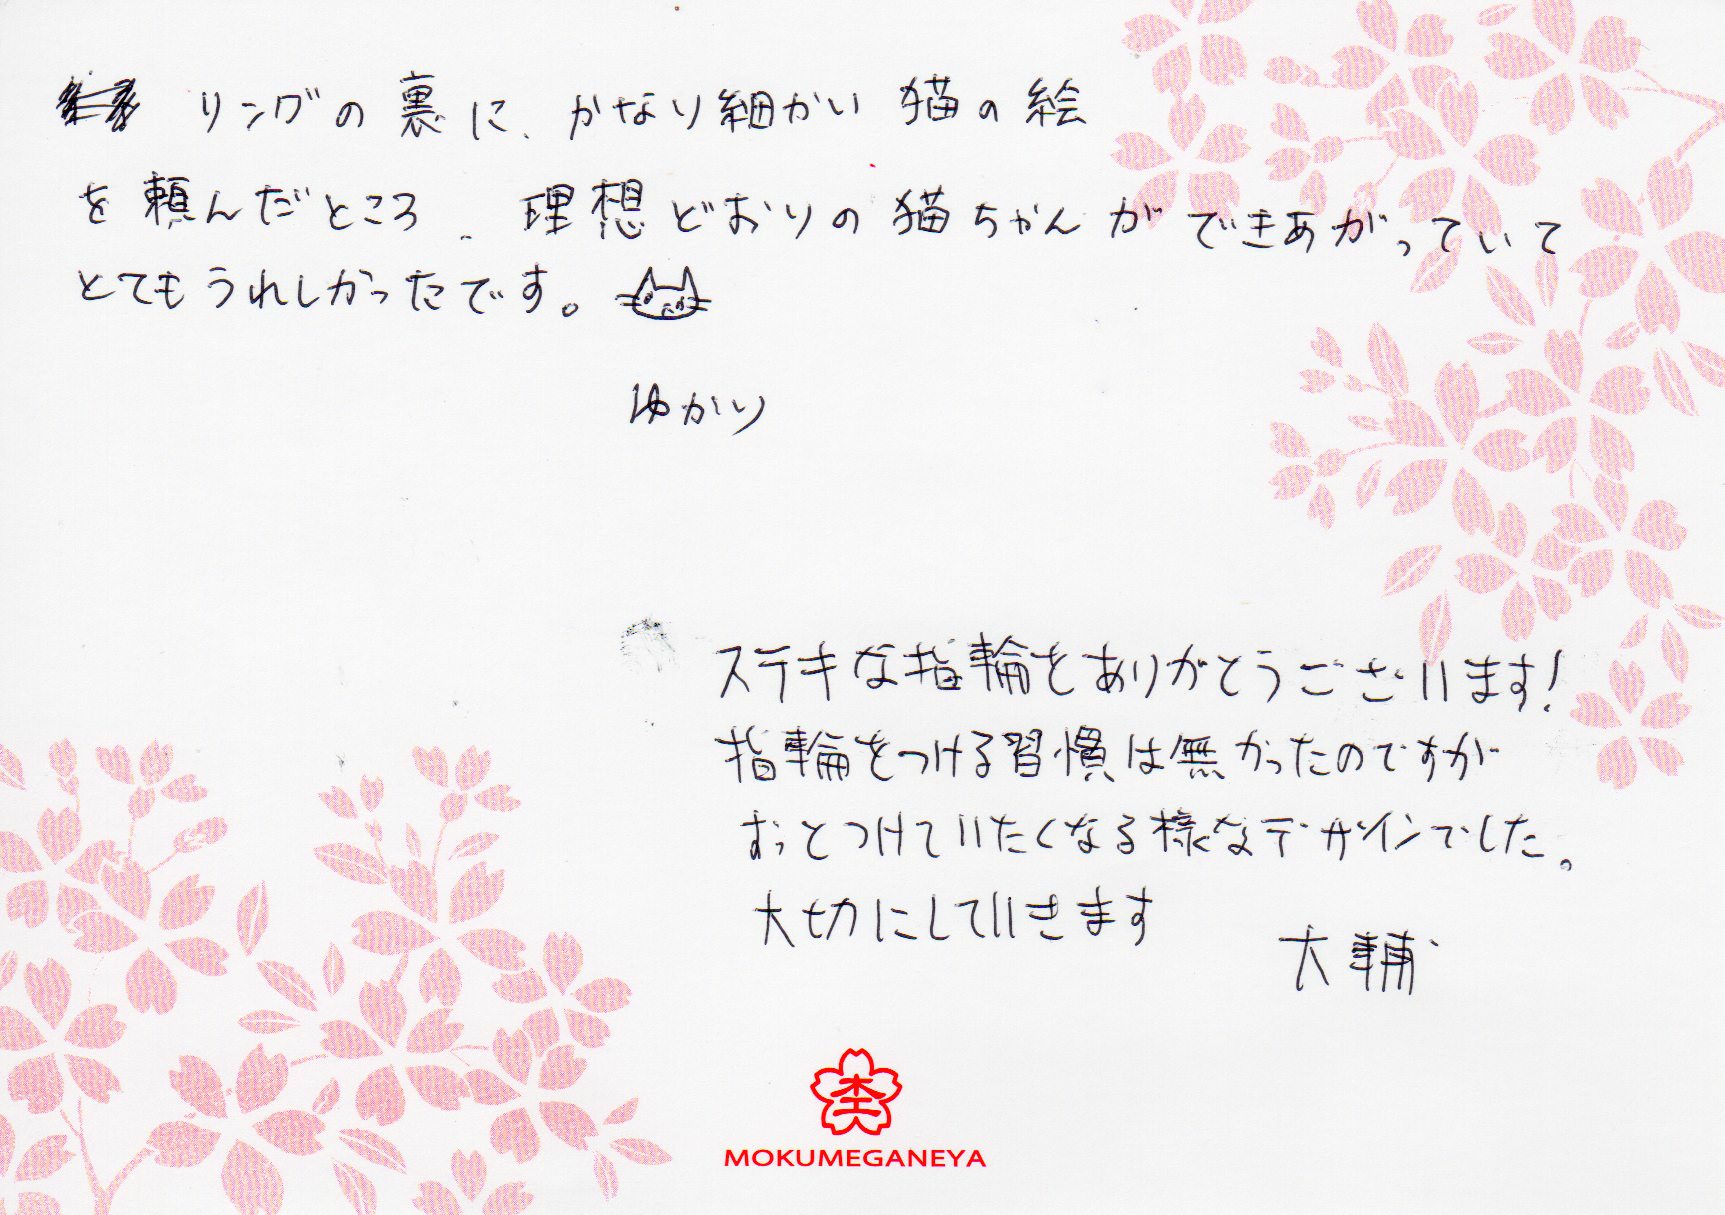 リングの裏に、かなり細かい猫の絵
を頼んだところ、理想どおりの猫ちゃんができあがっていて
とてもうれしかったです。
ゆかり
ステキな指輪をありがとうございます!
指輪をつける習慣は無かったのですが
ずっとつけていたくなる様なデザインでした。
大切にしていきます
大輔
MOKUMEGANEYA